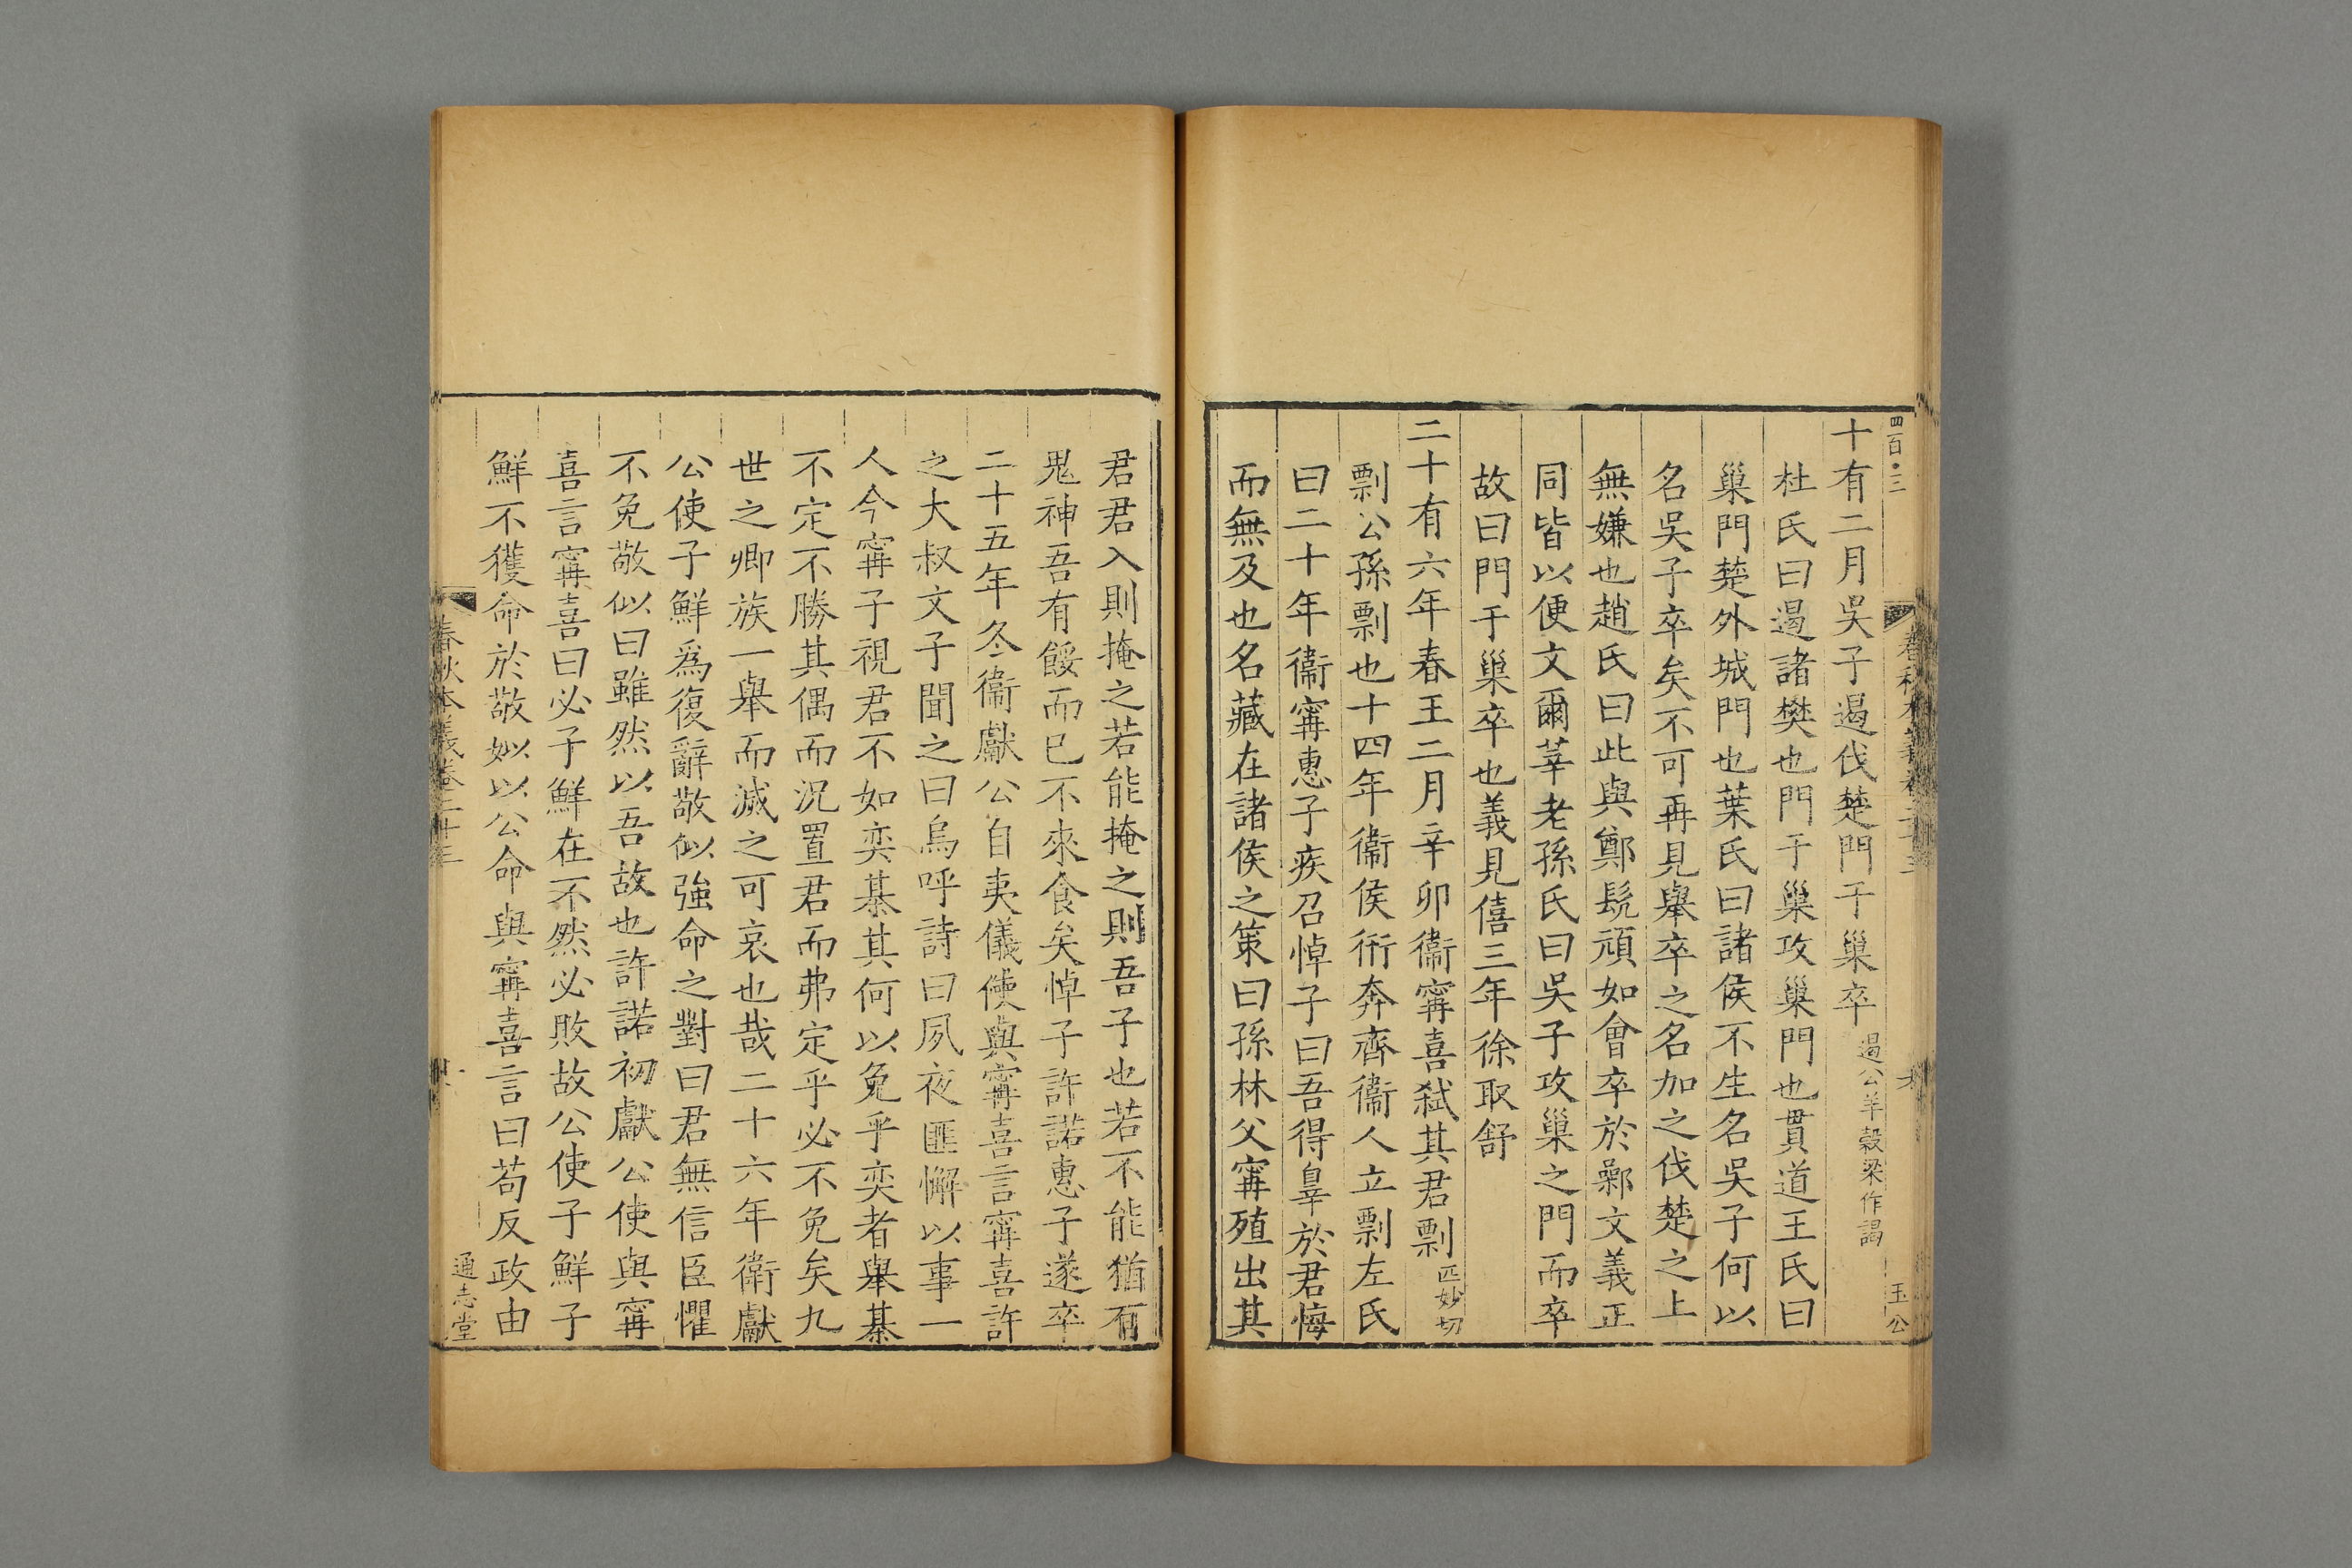 四百●三
十有二月吳子遏伐楚門于巢卒遏公羊穀梁作謁
杜氏曰遏諸樊也門于巢攻巢門也貫道王氏曰
巢門楚外城門也葉氏曰諸侯不生名吳子何以
名吳子卒矣不可再見舉卒之名加之伐楚之上
無嫌也趙氏曰此與鄭髡頑如會卒於鄵文義正
同皆以便文爾莘老孫氏曰吳子攻巢之門而卒
故曰門于巢卒也義見僖三年徐取舒
二十有六年春王二月辛卯衞甯喜弒其君剽匹妙切
剽公孫剽也十四年衞侯衎奔齊衞人立剽左氏
曰二十年衞甯惠子疾召悼子曰吾得辠於君悔
而無及也名藏在諸侯之策曰孫林父甯殖出其
玉公
君君入則掩之若能掩之則吾子也若不能猶有
鬼神吾有餒而已不來食矣悼子許諾惠子遂卒
二十五年冬衞獻公自夷儀使與甯喜言甯喜許
之大叔文子聞之曰烏呼詩曰夙夜匪懈以事一
人今甯子視君不如奕棊其何以免乎奕者舉棊
不定不勝其偶而況置君而弗定乎必不免矣九
世之卿族一舉而滅之可哀也哉二十六年衞獻
公使子鮮爲復辭敬似強命之對曰君無信臣懼
不免敬似曰雖然以吾故也許諾初獻公使與甯
喜言甯喜曰必子鮮在不然必敗故公使子鮮子
鮮不獲命於敬姒以公命與甯喜言曰苟反政由
春秋本義卷二十三
通志堂